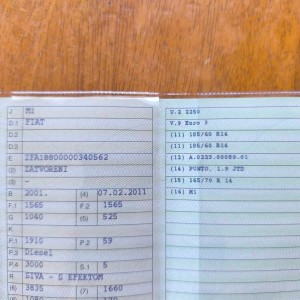 J M1
D.1 FIAT
D.2
D.3
E ZFA18800000340562
(2) ZATVORENI
(3) -
B 2001. (4) 07.02.2011
F.1 1565 F.2 1565
G 1040 (5) 525
K
P.1 1910 P.2 59
P.3 Diesel
P.4 3000 S.1 5
R SIVA - S EFEKTOM
(6) 3835 (7) 1660
V.9 Euro 3
(11) 185/60 R14
(11) 185/60 R14
(14) PUNTO, 1.9 JTD
(15) 165/70 R 14
(16) M1